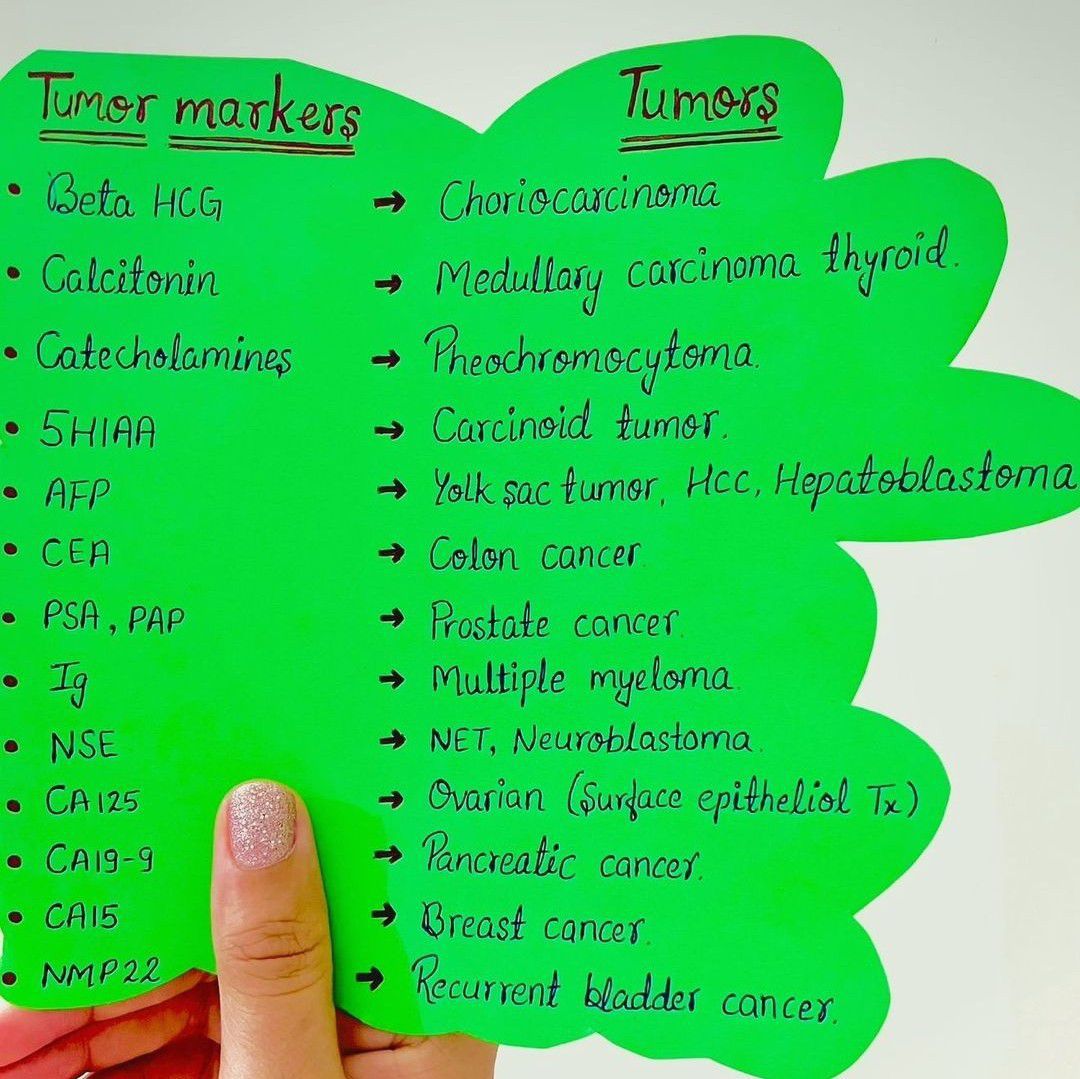 Tumor markers Tumors
• Beta HCG → Choriocarcinoma
• Calcitonin → Medullary carcinoma thyroid.
• Catecholamines → Pheochromocytoma.
• 5HIAA → Carcinoid tumor.
• AFP → Yolk sac tumor, HCC, Hepatoblastoma
• CEA → Colon cancer.
• PSA, PAP → Prostate cancer.
• Ig → Multiple myeloma.
• NSE → NET, Neuroblastoma.
• CA125 → Ovarian (Surface epitheliol Tx)
• CA19-9 → Pancreatic cancer.
• CA15 → Breast cancer.
• NMP22 → Recurrent bladder cancer.